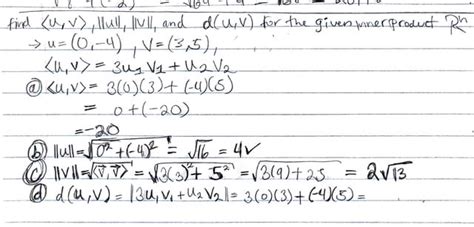 find ⟨u,v⟩, ||u||, ||v||, and d(u,v) for the given inner product Rⁿ
→ u=(0,-4), v=(3,5),
⟨u,v⟩ = 3u₁v₁ + u₂v₂
ⓐ ⟨u,v⟩ = 3(0)(3) + (-4)(5)
= 0+(-20)
=-20
ⓑ ||u|| = √0² + (-4)² = √16 = 4✓
ⓒ ||v|| = √⟨v⃗,v⃗⟩ = √3(3)² + 5² = √3(9)+25 = 2√13
ⓓ d(u,v) = |3u₁v₁ + u₂v₂| = 3(0)(3) + (-4)(5) =